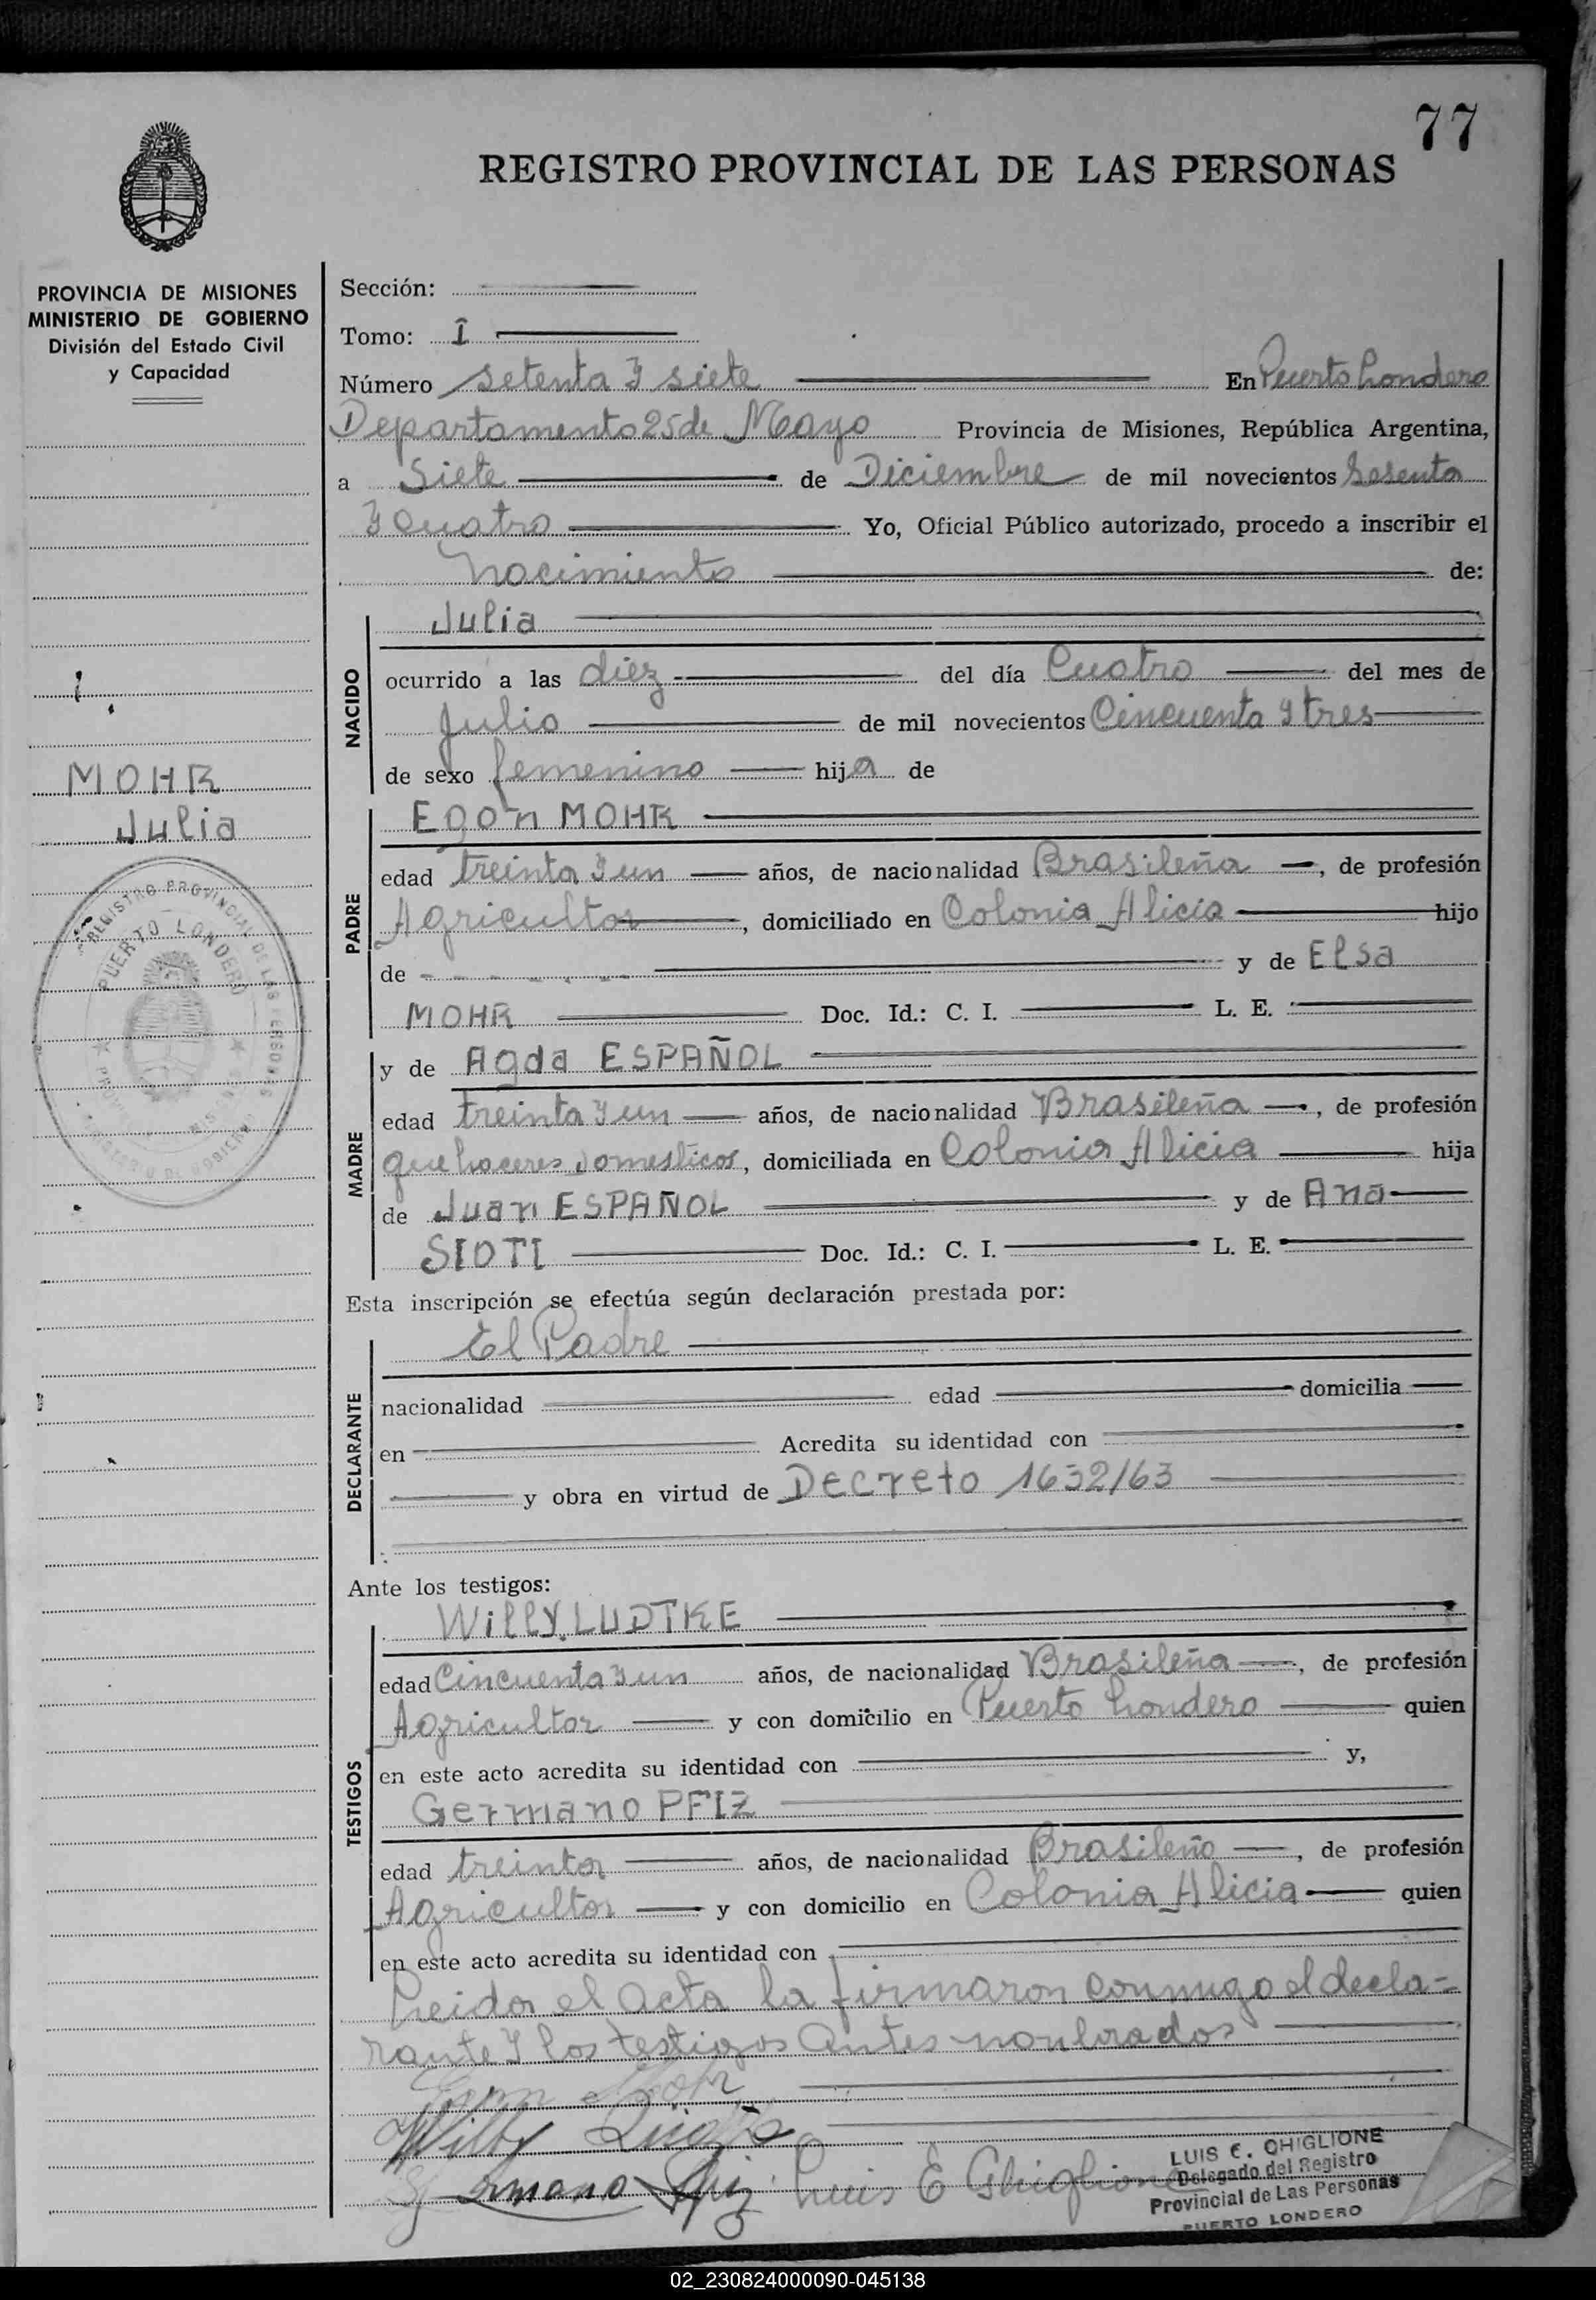 77
REGISTRO PROVINCIAL DE LAS PERSONAS
PROVINCIA DE MISIONES
MINISTERIO DE GOBIERNO
División del Estado Civil
y Capacidad
MOHR
Julia
REGISTRO PROVINCIAL DE LAS PERSONAS
PUERTO LONDERO
Sección:
Tomo: I
Número setenta y siete En Puerto Londero
Departamento 25 de Mayo Provincia de Misiones, República Argentina,
a Siete de Diciembre de mil novecientos Sesenta
y Cuatro Yo, Oficial Público autorizado, procedo a inscribir el
Nacimiento de:
NACIDO
Julia
ocurrido a las diez del día Cuatro del mes de
Julio de mil novecientos Cincuenta y tres
de sexo femenino hija de
PADRE
Egon MOHR
edad treinta y un años, de nacionalidad Brasileña, de profesión
Agricultor, domiciliado en Colonia Alicia hijo
de y de Elsa
MOHR Doc. Id.: C. I. L. E.
MADRE
y de Agda ESPAÑOL
edad treinta y un años, de nacionalidad Brasileña, de profesión
quehaceres domesticos, domiciliada en Colonia Alicia hija
de Juan ESPAÑOL y de Ana
SIOTI Doc. Id.: C. I. L. E.
Esta inscripción se efectúa según declaración prestada por:
DECLARANTE
El Padre
nacionalidad edad domicilia
en Acredita su identidad con
y obra en virtud de Decreto 1632/63
Ante los testigos:
TESTIGOS
Willy LUDTKE
edad Cincuenta y un años, de nacionalidad Brasileña, de profesión
Agricultor y con domicilio en Puerto Londero quien
en este acto acredita su identidad con y,
Germano PFIZ
edad treinta años, de nacionalidad Brasileño, de profesión
Agricultor y con domicilio en Colonia Alicia quien
en este acto acredita su identidad con
Leida el acta la firmaron conmigo el decla=
rante y los testigos antes nonbrados
Egon Mohr
Willy
Germano Pfiz Luis E Ghiglione
LUIS E. GHIGLIONE
Delegado del Registro
Provincial de Las Personas
PUERTO LONDERO
02_230824000090-045138